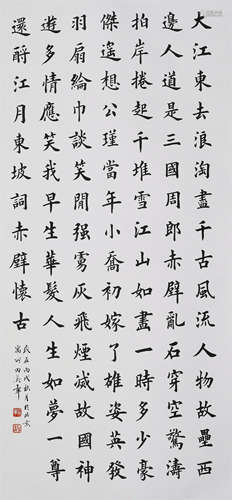 大江東去浪淘盡千古風流人物故壘西
邊人道是三國周郎赤壁亂石穿空驚濤
拍岸捲起千堆雪江山如畫一時多少豪
傑遙想公瑾當年小喬初嫁了雄姿英發
羽扇綸巾談笑閒强虜灰飛煙滅故國神
遊多情應笑我早生華髮人生如夢一尊
還酹江月東坡詞赤壁懷古
丙戌秋月
田英章